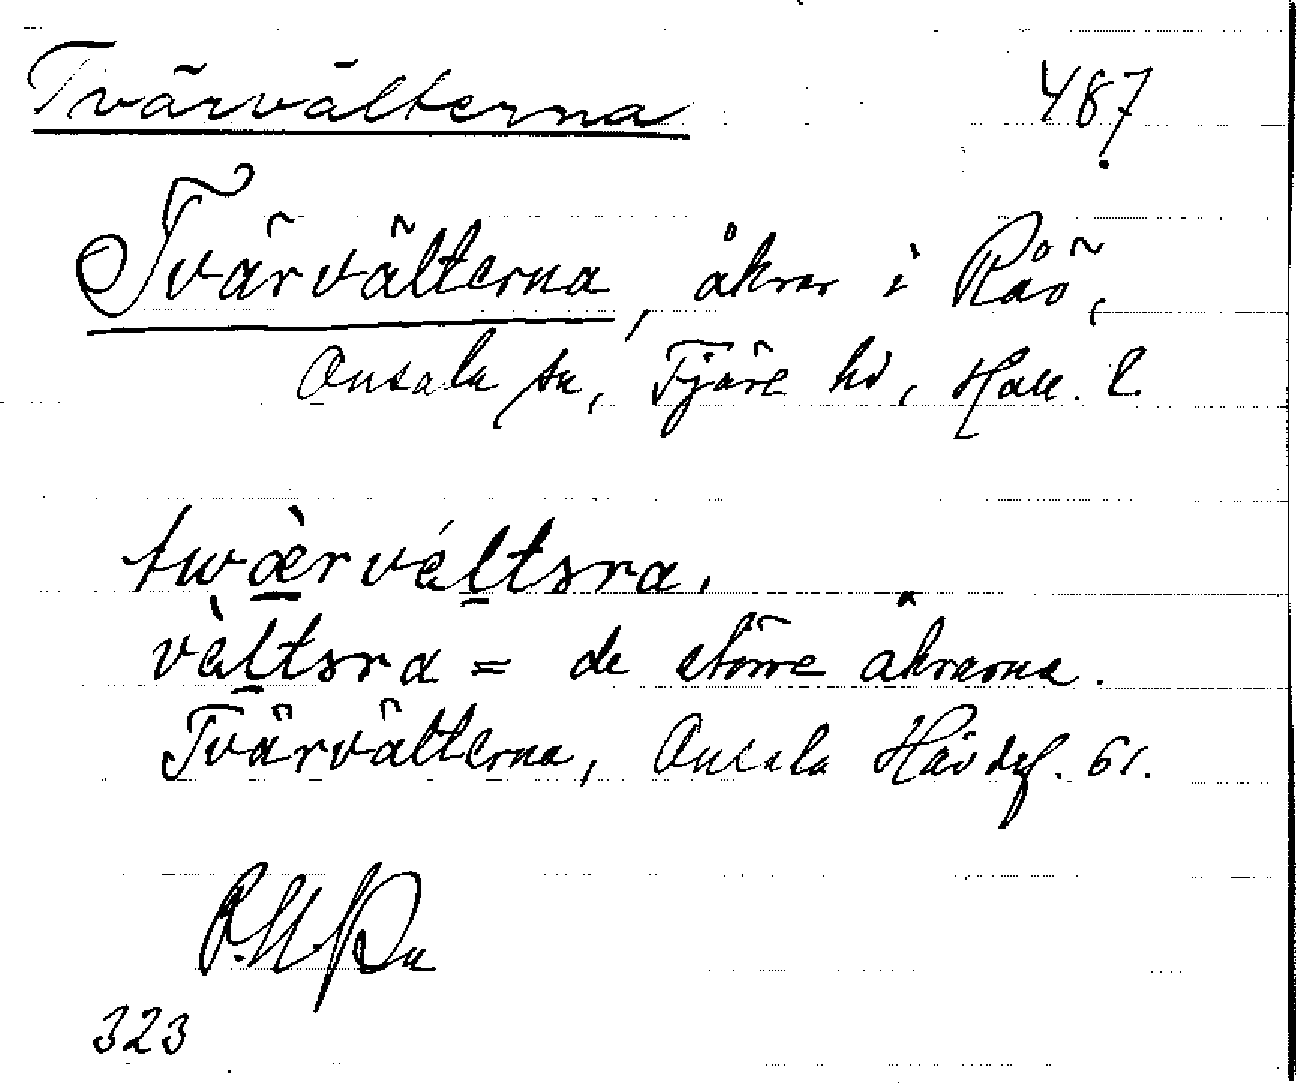 Tvärvälterna 487.
Tvärvälterna, åkrar i Råö,
Onsala sn, Fjäre hd, Hall. l.
twæ̀rvéltsra.
vèltsra = de större åkrarna.
Tvärvälterna, Onsala Hävdef. 61.
323